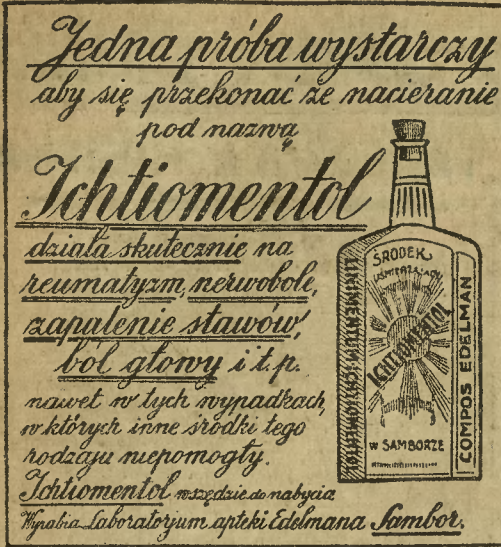 Jedna próba wystarczy
aby się przekonać że nacieranie
pod nazwą
Ichtiomentol
działa skutecznie na
reumatyzm, nerwobole,
zapalenie stawów,
ból głowy i t. p.
nawet w tych wypadkach,
w których inne środki tego
rodzaju niepomogły.
Ichtiomentol wszędzie do nabycia
Wyrabia Laboratorjum apteki Edelmana Sambor.
ŚRODEK
UŚMIERZAJĄCY
ICHTIOMENTOL
w SAMBORZE
COMPOS EDELMAN